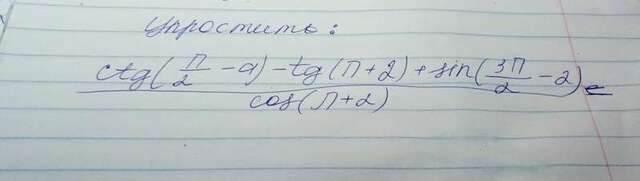 Упростить:
ctg(π/2 - a) - tg(π+2) + sin(3π/2 - 2)
cos(π+2) =